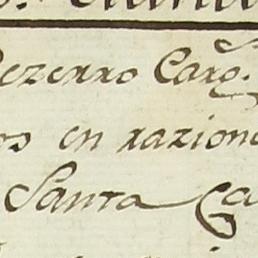 Bezerro Carg.
os en razion
Santa Ca